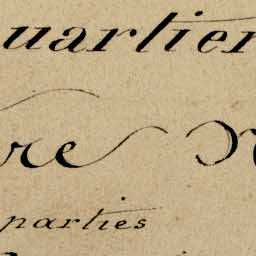 uartier
re N
parties